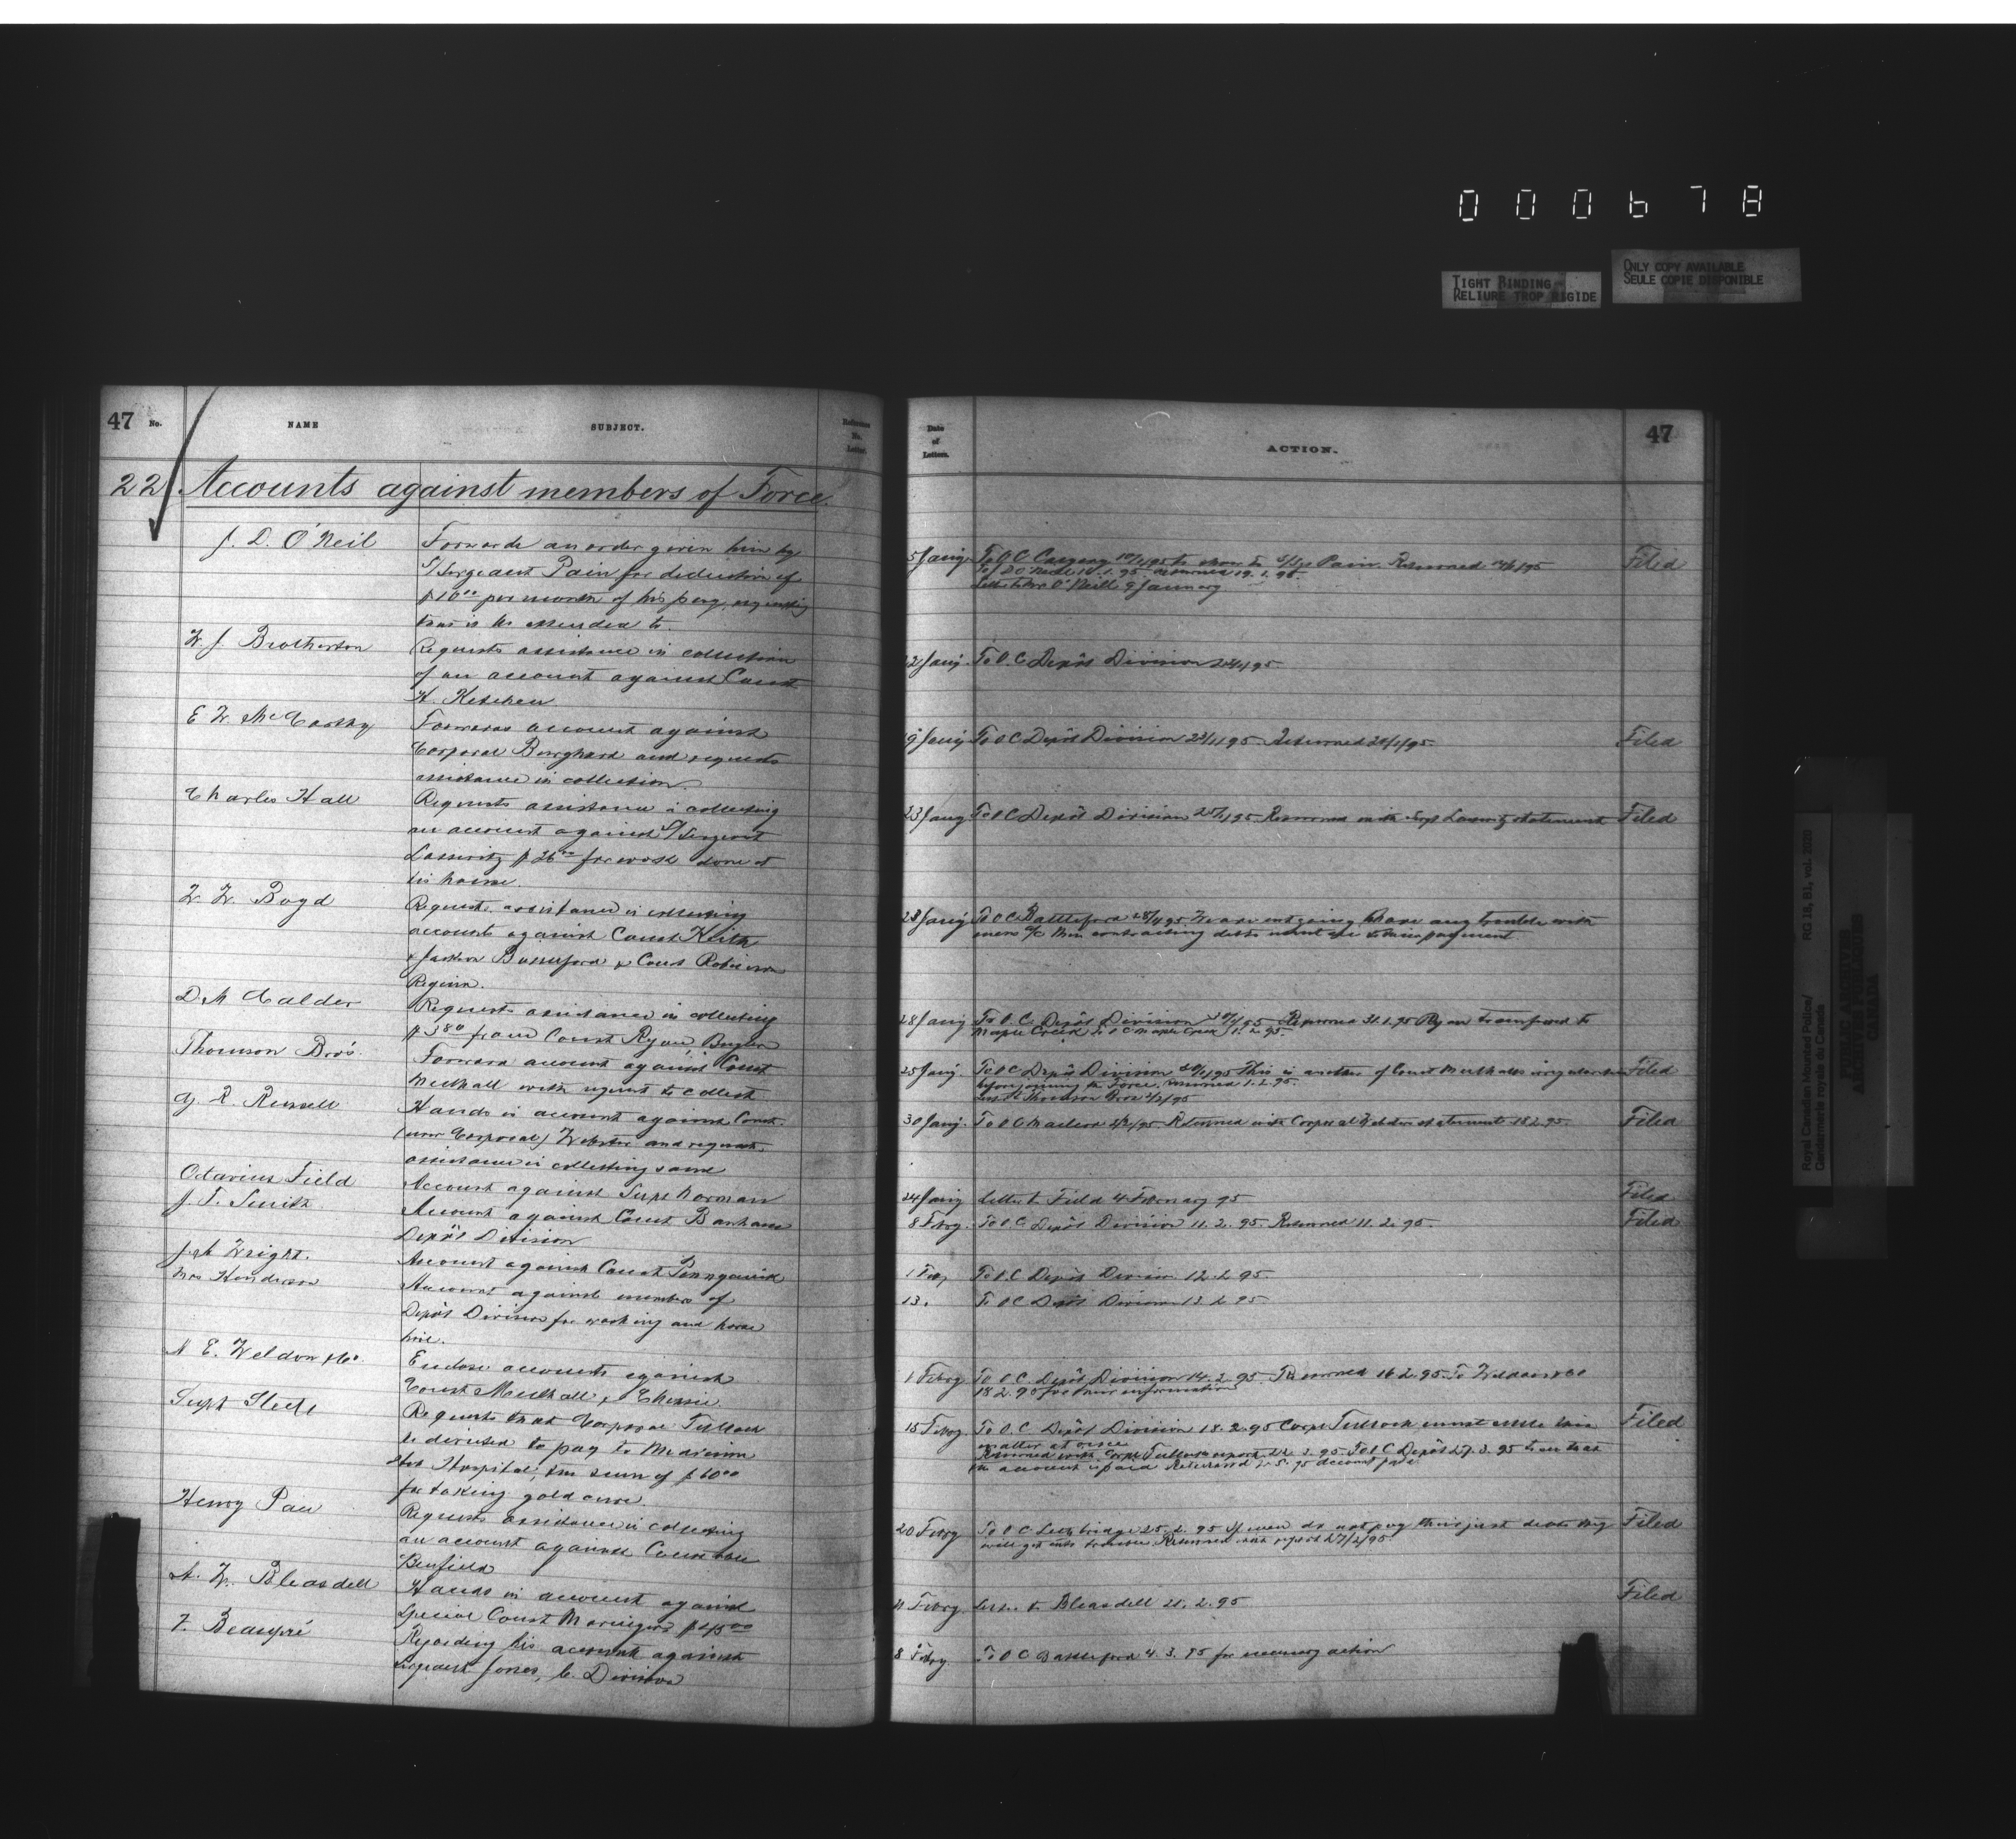 000678
TIGHT BINDING
RELIURE TROP RIGIDE
ONLY COPY AVAILABLE
SEULE COPIE DISPONIBLE
47 No.
NAME
SUBJECT.
Reference No. Letter.
22 Accounts against members of Force.
J. D. O'Neil
Forwards an order given him by
S/Sergeant Pain for deduction of
$10.00 per month of his pay, requesting
that it be attended to.
W. J. Brotherton
Requests assistance in collection
of an account against Const
H. Ketchen
E W. McCarthy
Forwards account against
Corporal Burghard and requests
assistance in collection.
Charles Hall
Requests assistance in collecting
an account against S/Sergeant
Lasswitz $26.00 for work done at
his house.
Boyd
Requests assistance in collecting
accounts against Const Keith
& Jackson & Const Robinson
Regina.
D. M Calder
Requests assistance in collecting
$3.80 from Const Ryan Bugler
Thomson Bro's.
Forward account against Const
Mulhall with request to collect
G. R. Russell
Hands in account against Const.
(now Corporal) Webster and requests
assistance in collecting same
Octavius Field
Account against Supt Norman
J. T. Smith
Account against Const Banham
Depôt Division
Wright.
Account against Const Pennyquick
Mrs Henderson
Account against members of
Depôt Division for washing and horse
hire.
N E. Weldon & Co.
Enclose accounts against
Const Mulhall &
Supt Steele
Requests that Corporal Tulloch
be directed to pay to Medicine
Hat Hospital, the sum of $60.00
for taking gold cure.
Henry Pau
Requests assistance in collecting
an account against Constable
Benfield
A. W. Bleasdell
Hands in account against
Special Const $45.00
F. Beaupré
Regarding his account against
Sergeant Jones, C. Division
Date of Letters.
ACTION.
47
5 Jany To O C Calgary to show to S/Sgt Pain. Returned Filed
To J D O'Neill returned 19. 1. 95.
Letter to Mr O'Neill 9 January
22 Jany. To O. C. Depôt Division
19 Jany To O C Depôt Division 23/1/95 Returned Filed
23 Jany To O C Depôt Division 25/1/95 Returned with Sergt Lasswitz statement Filed
23 Jany To O C Battleford 28/1/95 We are not going to have any trouble with
mens a/c Men contracting debts must
28 Jany To O. C. Depôt Division Returned 31.1.95 Ryan transferred to
Maple Creek. To O C Maple Creek 1. 2. 95.
25 Jany. To O C Depôt Division This is another of Const Mulhalls irregularities Filed
before joining the Force, returned 1. 2. 95.
Thomson Bros
30 Jany. To O C Macleod Returned with Corporal Webster statement 18 2. 95. Filed
24 Jany Letter to Field 4 February 95 Filed
8 Febry. To O C Depôt Division 11. 2. 95 Returned 11. 2. 95. Filed
1 Feby To O. C Depôt Division 12. 2 95.
13. To O C Depôt Division 13 2 95
1 Febry To O. C. Depôt Division 14. 2. 95. Returned 16 2. 95. To Weldon & Co
18 2. 95 for their information
15 Febry To O. C. Depôt Division 18. 2. 95 Corpl Tulloch must settle this Filed
matter at once
Returned with Corpl Tullochs report 22. 3. 95. To O C Depôt 27. 3. 95
the account is paid Returned account paid
20 Febry To O C Lethbridge 25. 2. 95 If men do not pay their just debts they Filed
will get into trouble Returned with report 27/2/95.
Febry. Letter to Bleasdell 21. 2. 95 Filed
8 Febry. To O C Battleford 4. 3. 95 for necessary action
Royal Canadian Mounted Police/ RG 18, B1, vol. 2020
Gendarmerie royale du Canada
PUBLIC ARCHIVES
ARCHIVES PUBLIQUES
CANADA